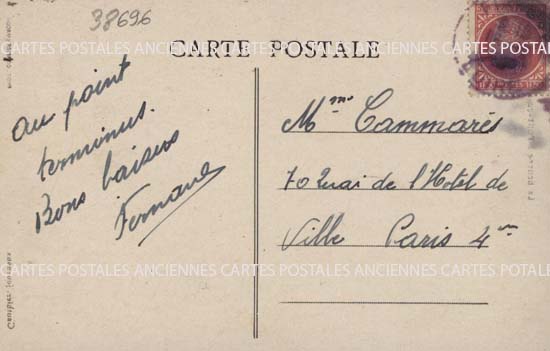 38696
CARTES POSTALES ANCIENNES CARTES POSTALES ANCIENNES CARTES POSTALES
CARTE POSTALE
au point
terminus.
Bons baisers
Fernand
Mme Cammarés
70 Quai de l'Hotel de
Ville Paris 4me
CARTES POSTALES ANCIENNES CARTES POSTALES ANCIENNES CARTES POSTALES